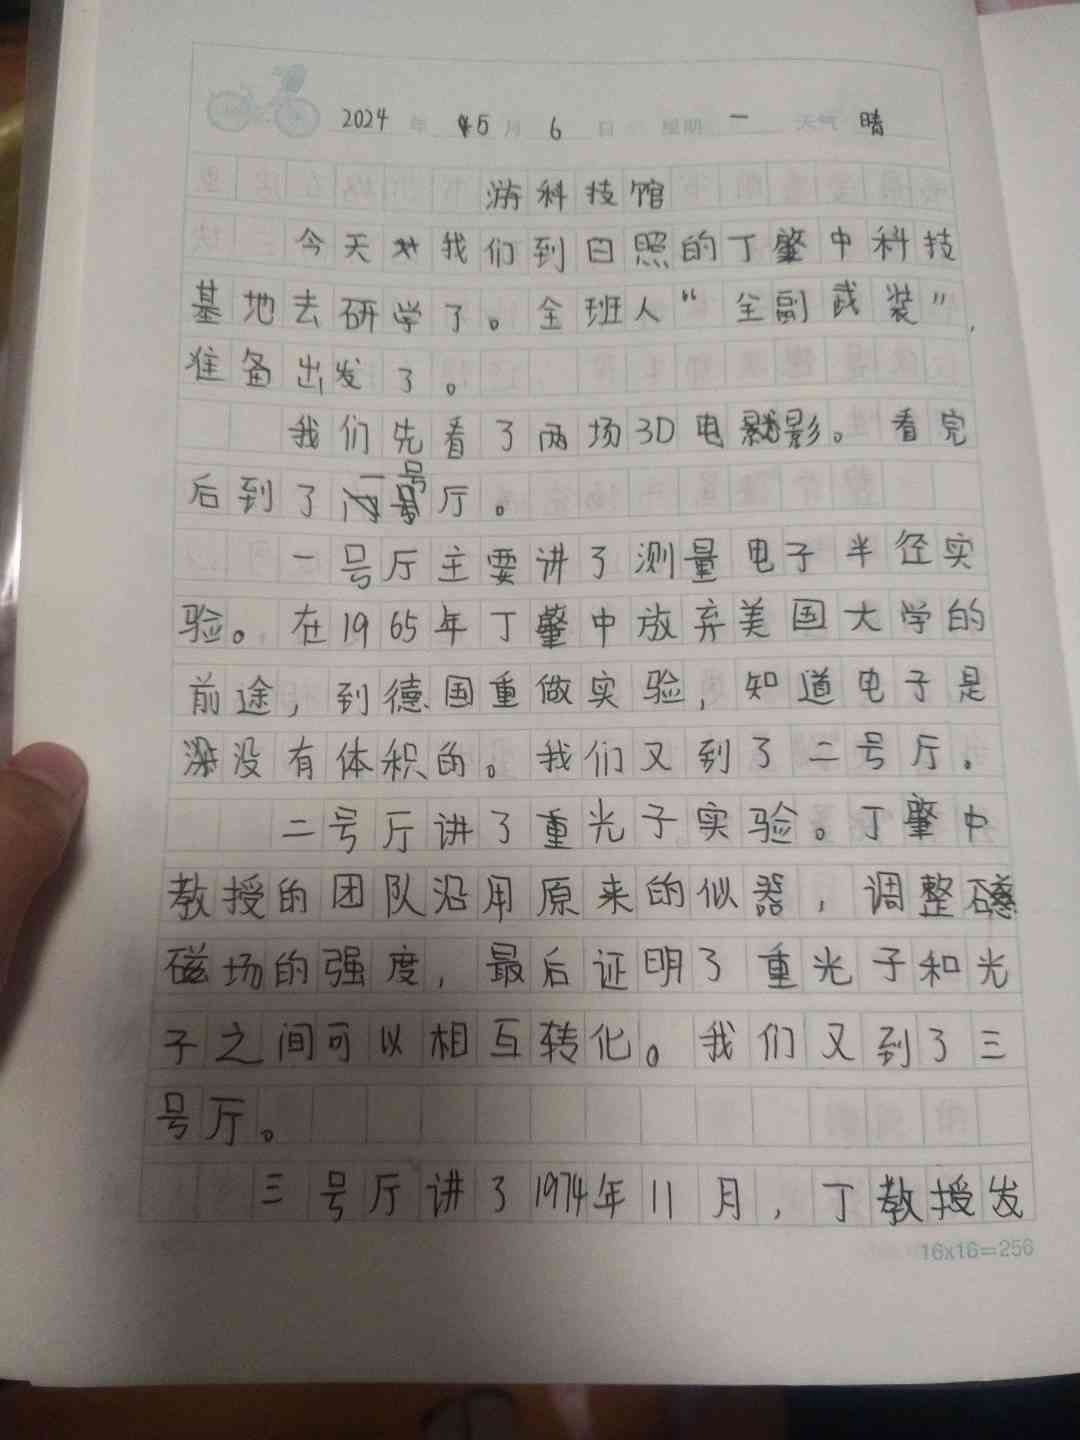 2024年 5月 6日 星期 一 天气 晴
游科技馆
今天我们到日照的丁肇中科技
基地去研学了。全班人“全副武装”,
准备出发了。
我们先看了两场3D电影。看完
后到了一号厅。
一号厅主要讲了测量电子半径实
验。在1965年丁肇中放弃美国大学的
前途,到德国重做实验,知道电子是
没有体积的。我们又到了二号厅。
二号厅讲了重光子实验。丁肇中
教授的团队沿用原来的似器,调整
磁场的强度,最后证明了重光子和光
子之间可以相互转化。我们又到了三
号厅。
三号厅讲了1974年11月,丁教授发
16x16=256